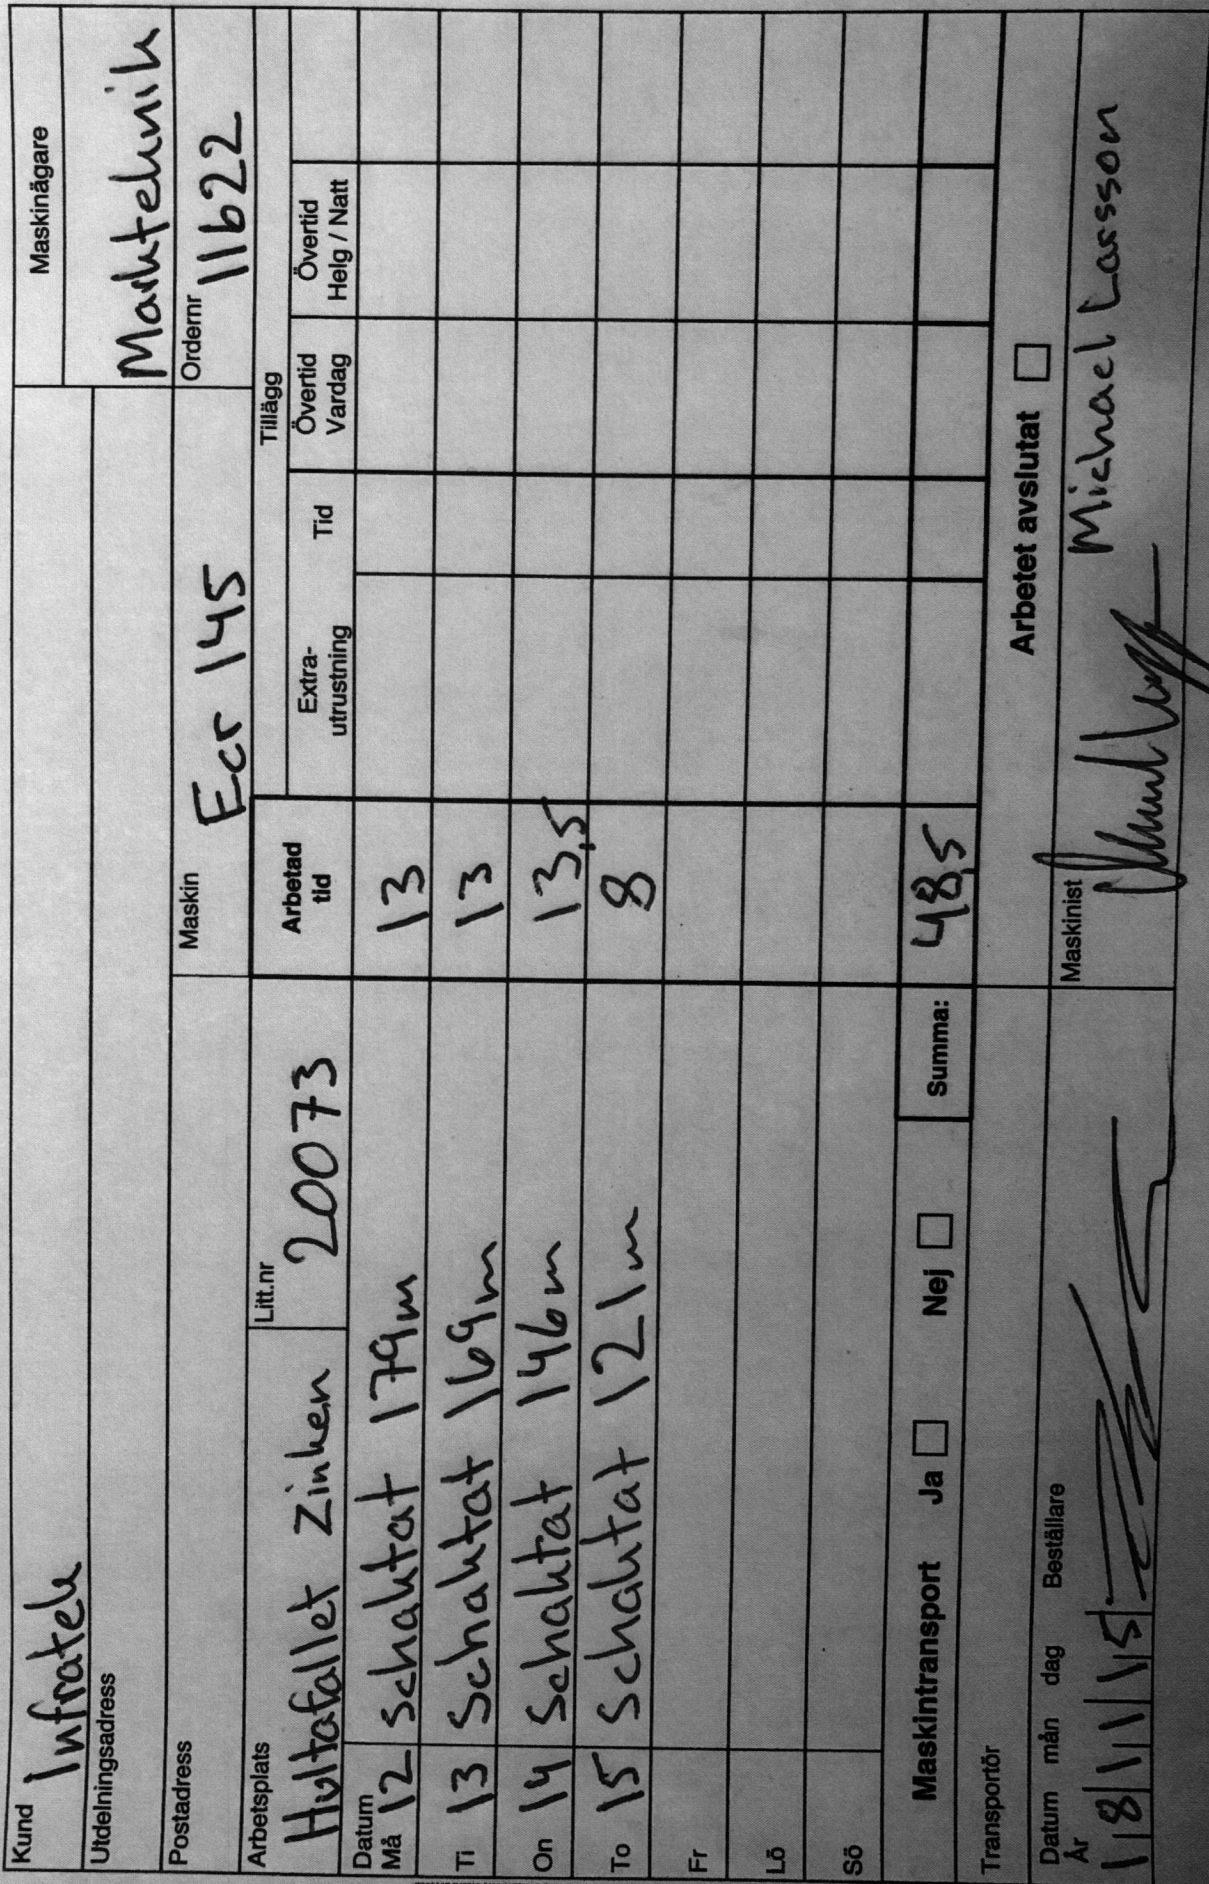 Kund Infratek
Maskinägare
Utdelningsadress
Marktehnik
Postadress
Maskin Ecr 145
Ordernr 11622
Arbetsplats Hultafallet Zinken
Litt.nr 20073
Arbetad tid
Tillägg
Extra-utrustning
Tid
Övertid Vardag
Övertid Helg / Natt
Datum
Må 12 Schaktat 179m 13
Ti 13 Schaktat 169m 13
On 14 Schaktat 146m 13,5
To 15 Schaktat 121m 8
Fr
Lö
Sö
Maskintransport Ja Nej
Summa: 48,5
Transportör
Arbetet avslutat
Datum
År mån dag
18 11 15
Beställare
Maskinist
Michael Larsson